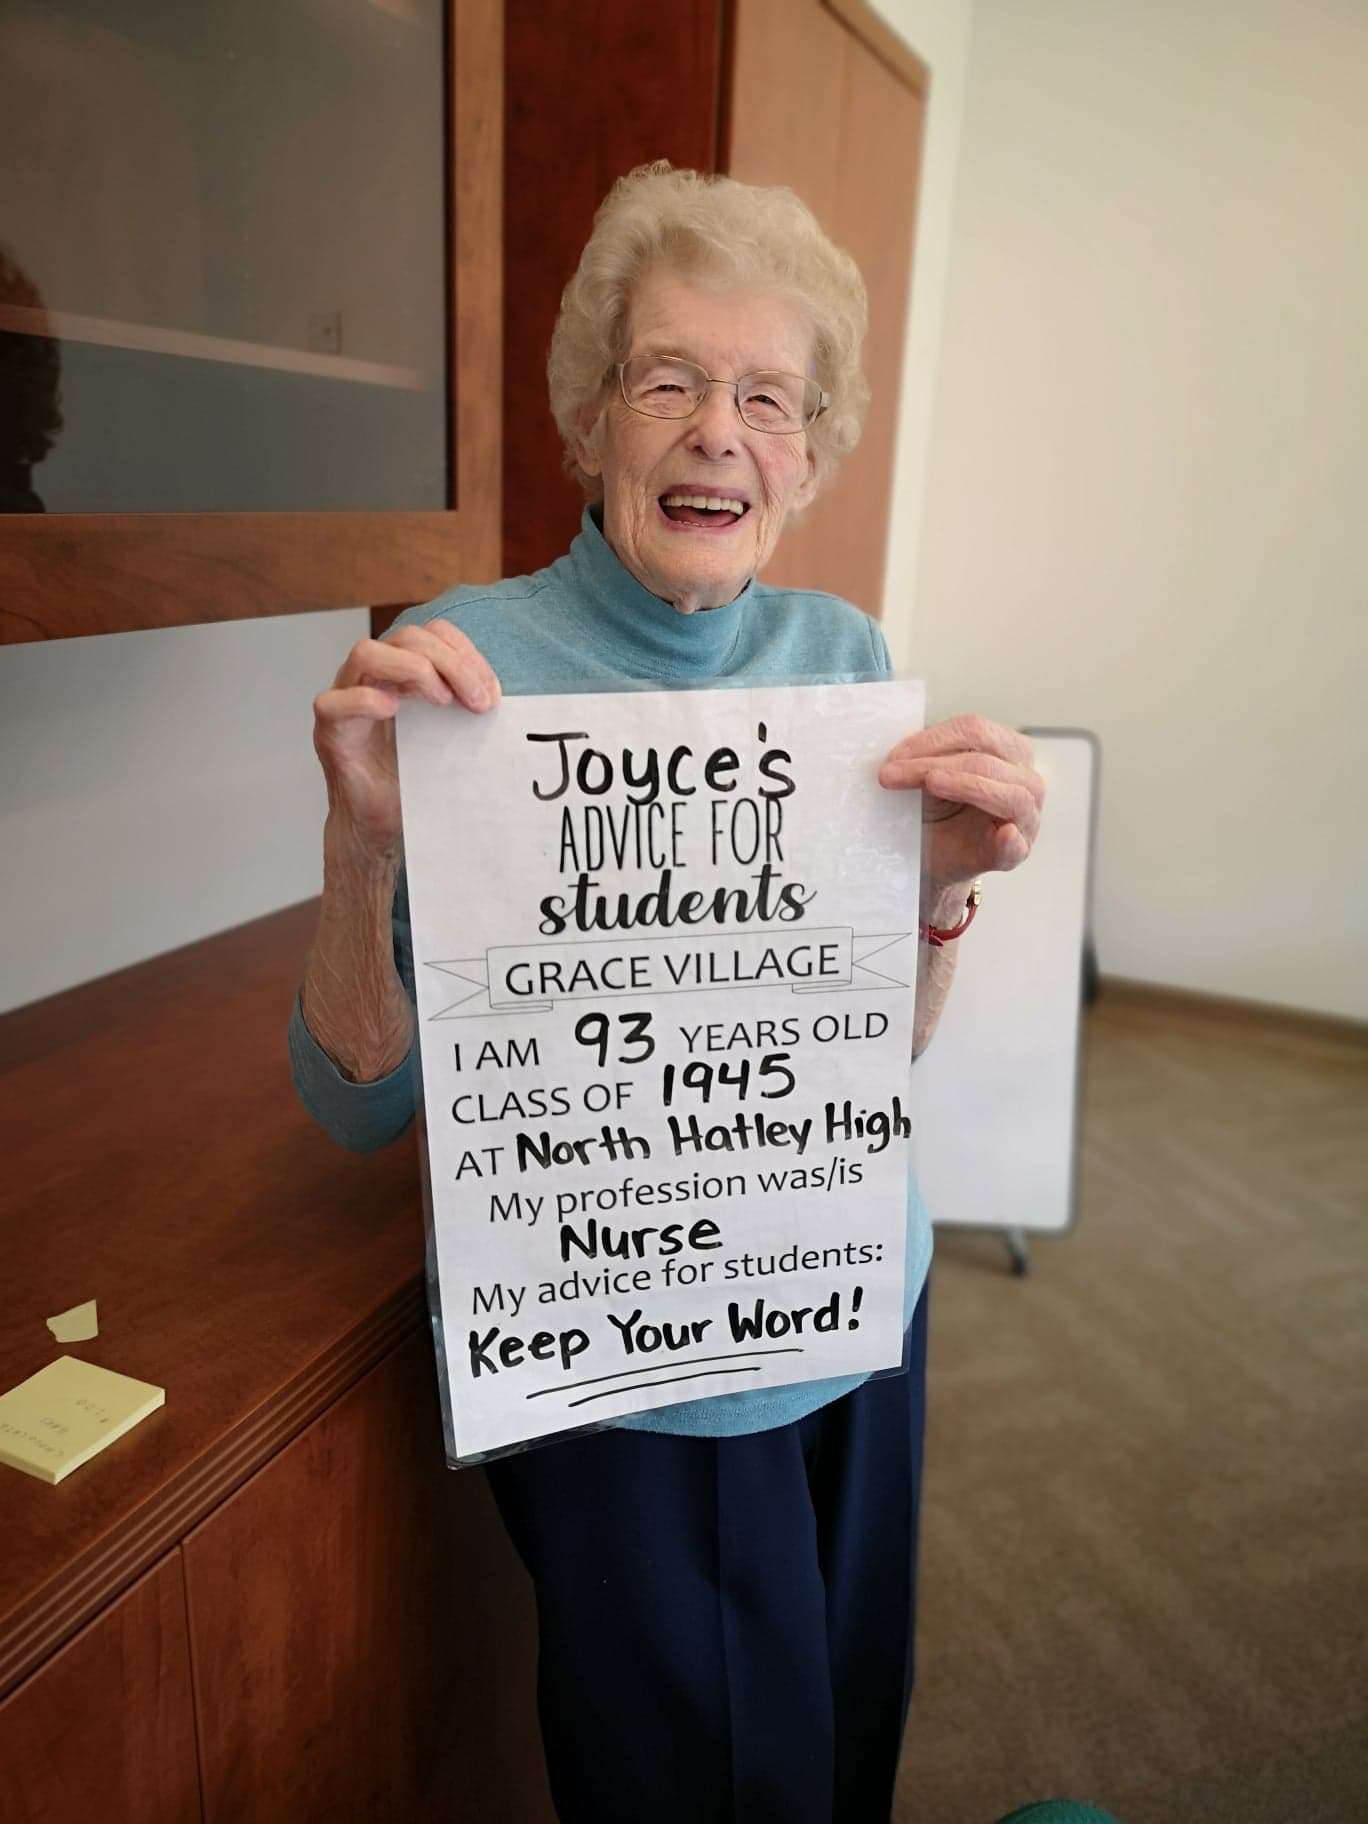 Joyce's
ADVICE FOR
students
GRACE VILLAGE
I AM 93 YEARS OLD
CLASS OF 1945
AT North Hatley High
My profession was/is
Nurse
My advice for students:
Keep Your Word!